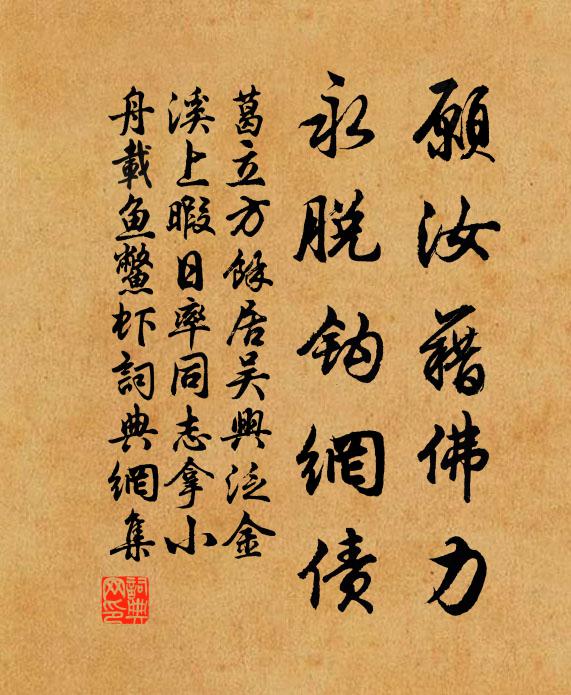 願汝藉佛力
永脱鈎網債
葛立方餘居吴興泛金
溪上暇日率同志拿小
舟載魚鱉虾詞典網集
詞典网印